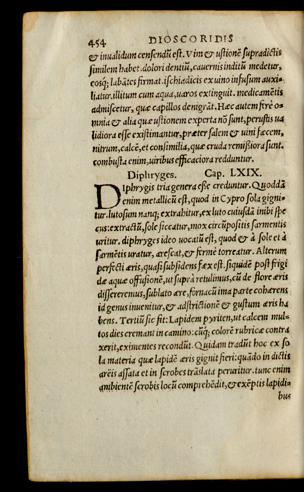 454 DIOSCORIDIS
& inualidum censendū est. Vim & ustionē supradictis
similem habet. dolori dentiū, cauernis inditū medetur,
eosq; labātes firmat. ischiadicis ex uino infusum auxi-
liatur. illitum cum aqua, uaros extinguit. medicamētis
admiscetur, quæ capillos denigrāt. Hæc autem ferè o-
mnia & alia quæ ustionem experta nō sunt, perustis ua
lidiora esse existimantur, præter salem & uini fæcem,
nitrum, calcē, et consimilia, quæ cruda remissiora sunt.
combusta enim, uiribus efficaciora redduntur.
Diphryges. Cap. LXIX.
DIphrygis tria genera esse creduntur. Quoddā
enim metallicū est, quod in Cypro sola signi-
tur. lutosum nanq; extrahitur, ex luto cuiusdā inibi spe
cus: extractū, sole siccatur, mox circūpositis sarmentis
uritur. diphryges ideo uocatū est, quod & à sole et à
sarmētis uratur, arescat, & fermè torreatur. Alterum
perfecti æris, quasi subsidens fæx est. siquidē post frigi
dæ aquæ offusionē, ut suprà retulimus, cū de flore æris
dissereremus, sublato ære, fornacū ima parte cohærens
id genus inuenitur, & adstrictionē & gustum æris ha
bens. Tertiū sic fit: Lapidem pyriten, ut calcem mul-
tos dies cremant in camino: cūq; colorē rubricæ contra
xerit, eximentes recondūt. Quidam tradūt hoc ex so
la materia quæ lapidē æris gignit fieri: quādo in dictis
areis assata et in scrobes trāslata peruritur. tunc enim
ambientē scrobis locū comprehēdit, & exēptis lapidi-
bus